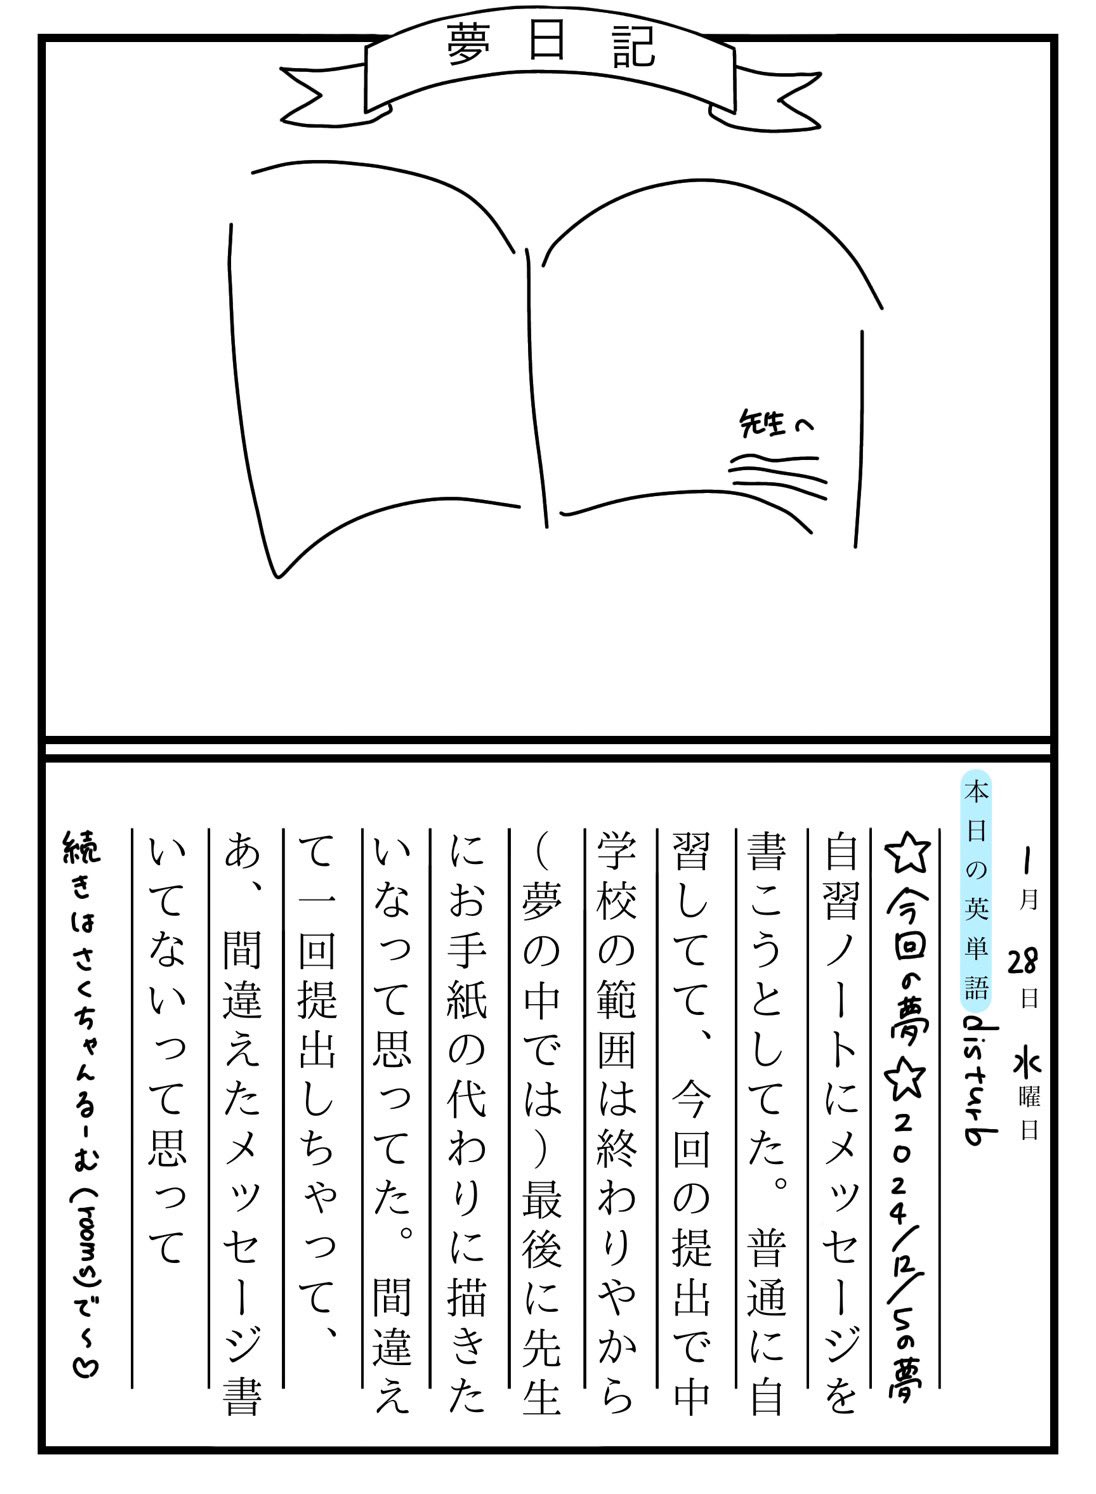 夢日記
先生へ
1月 28日 水曜日
本日の英単語 disturb
☆今回の夢☆2024/12/5の夢
自習ノートにメッセージを
書こうとしてた。普通に自
習してて、今回の提出で中
学校の範囲は終わりやから
（夢の中では）最後に先生
にお手紙の代わりに描きた
いなって思ってた。間違え
て一回提出しちゃって、
あ、間違えたメッセージ書
いてないって思って
続きはさくちゃんるーむ(rooms)で〜♡